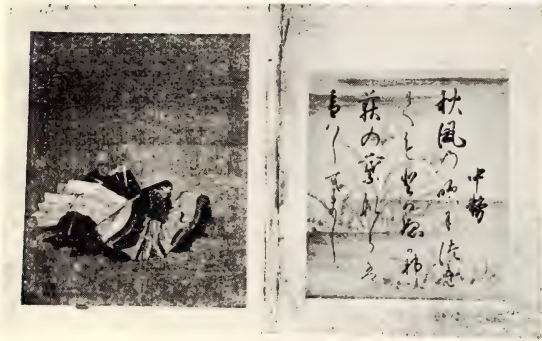 中務
秋風の吹につけ
てもとはぬかな
荻の葉ならは
音はしてまし